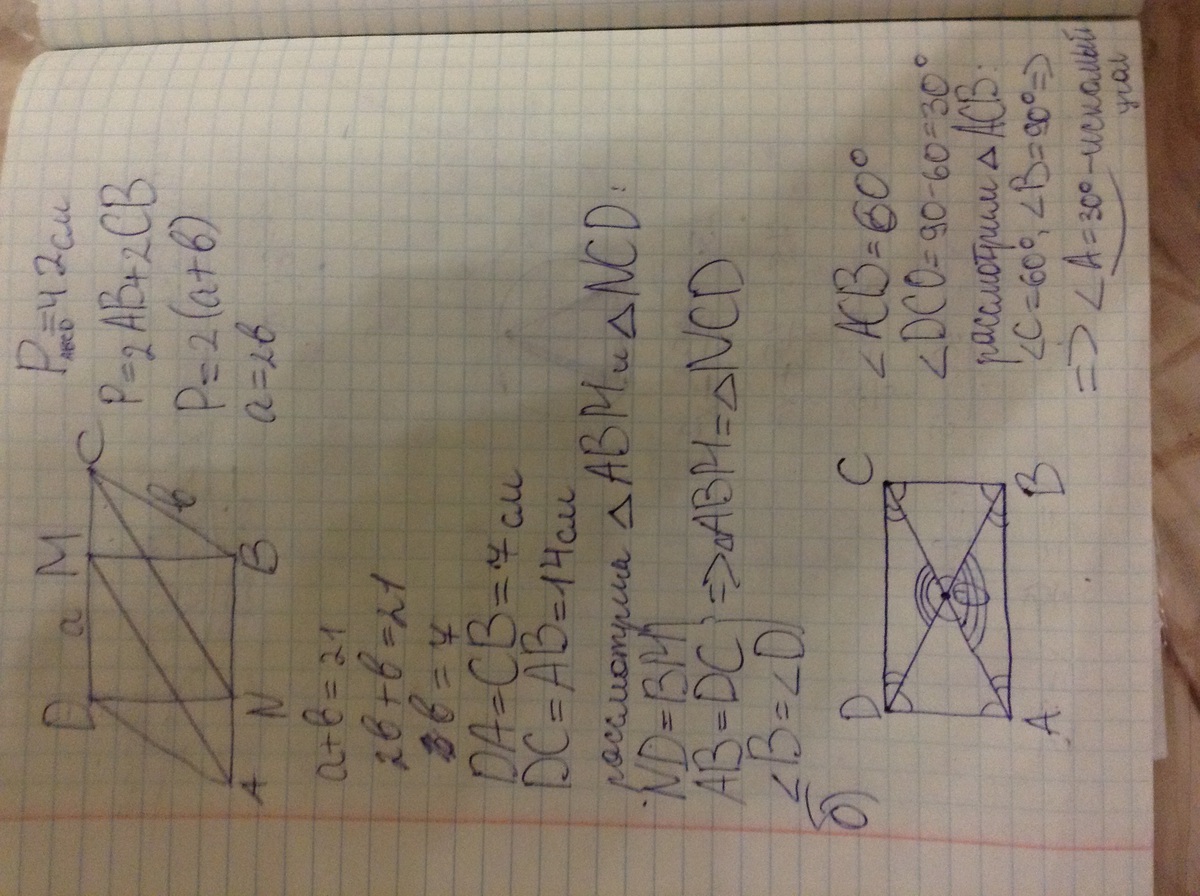 D a M C
в
A N B
P_ABCD=42см
P=2AB+2CB
P=2(a+в)
a=2в
a+в=21
2в+в=21
в=7
DA=CB=7см
DC=AB=14см
рассмотрим △ABM и △NCD:
ND=BM
AB=DC } =>△ABM=△NCD
∠B=∠D
б)
D C
O
A B
∠ACB=60°
∠DCO=90-60=30°
рассмотрим △ACB:
∠C=60°, ∠B=90°=>
=> ∠A=30°-искомый
угол